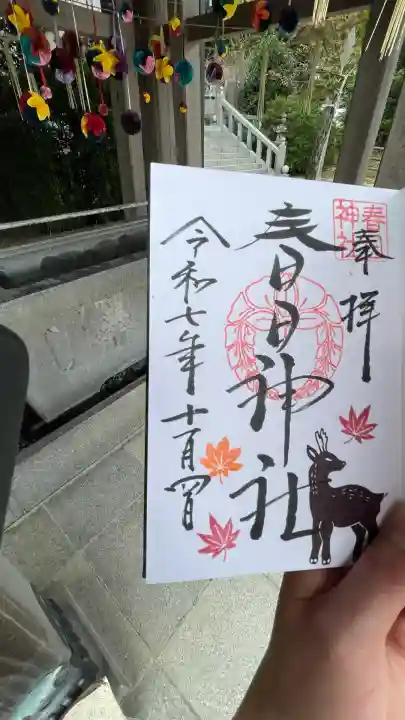 奉拝
春日神社
春日神社
令和七年十一月四日